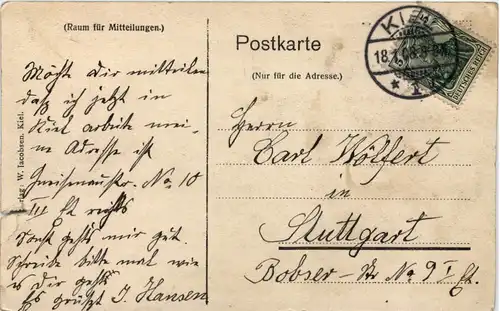 (Raum für Mitteilungen.)
Möchte dir mitteilen
daß ich jetzt in
Kiel arbeite mei-
ne Adresse ist
Gneisenaustr. No 10
III Et rechts
Sonst gehts mir gut.
Schreibe bitte mal wie
es dir geht
Es grüßt J. Hansen
Verlag: W. Jacobsen, Kiel.
Postkarte
(Nur für die Adresse.)
KIEL
18.
DEUTSCHES REICH
Herrn
Carl Wölfert
in
Stuttgart
Bobser-Str No 9 I Et.